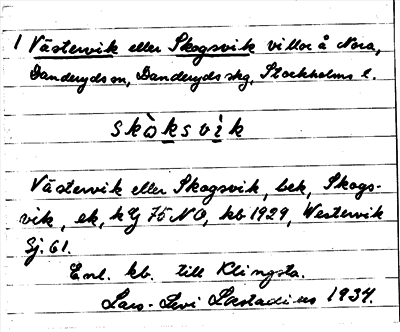 1 Västervik eller Skogsvik villor å Nora,
Danderyds sn, Danderyds skg, Stockholms l.
skòksvìk
Västervik eller Skogsvik, bek, Skogs-
vik, ek, h 75 NO, kb 1929, Westervik
Sj. 61.
Enl. kb. till Klingsta.
Lars-Levi Læstadius 1934.